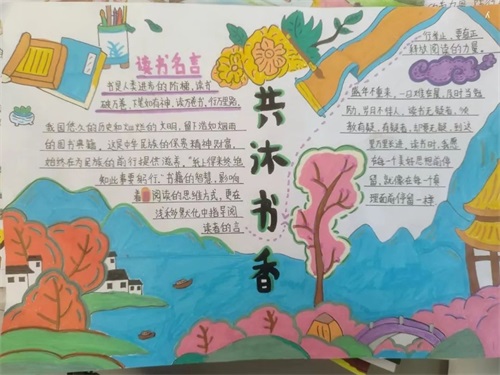 读书名言
书是人类进步的阶梯，读书
破万卷，下笔如有神，读万卷书，行万里路，
我国悠久的历史和灿烂的文明，留下浩如烟海
的图书典籍，这是中华民族的保贵精神财富，
始终在为民族的前行提供滋养。"纸上得来终觉
知此事要躬行。"书籍的智慧，影响
着 阅读的思维方式，更在
浅移默化中指导阅
读者的言
共沐书香
行举止，更有正
鲜梦阅读的力量。
盛年不重来，一日难在晨，及时当勉
励，岁月不待人，读书无疑者，须
教有疑，有疑者，却要无疑，到这
里方是长进，读书时，我愿
在每一个美好思想前停
留，就像在每一条
理面前停留一样